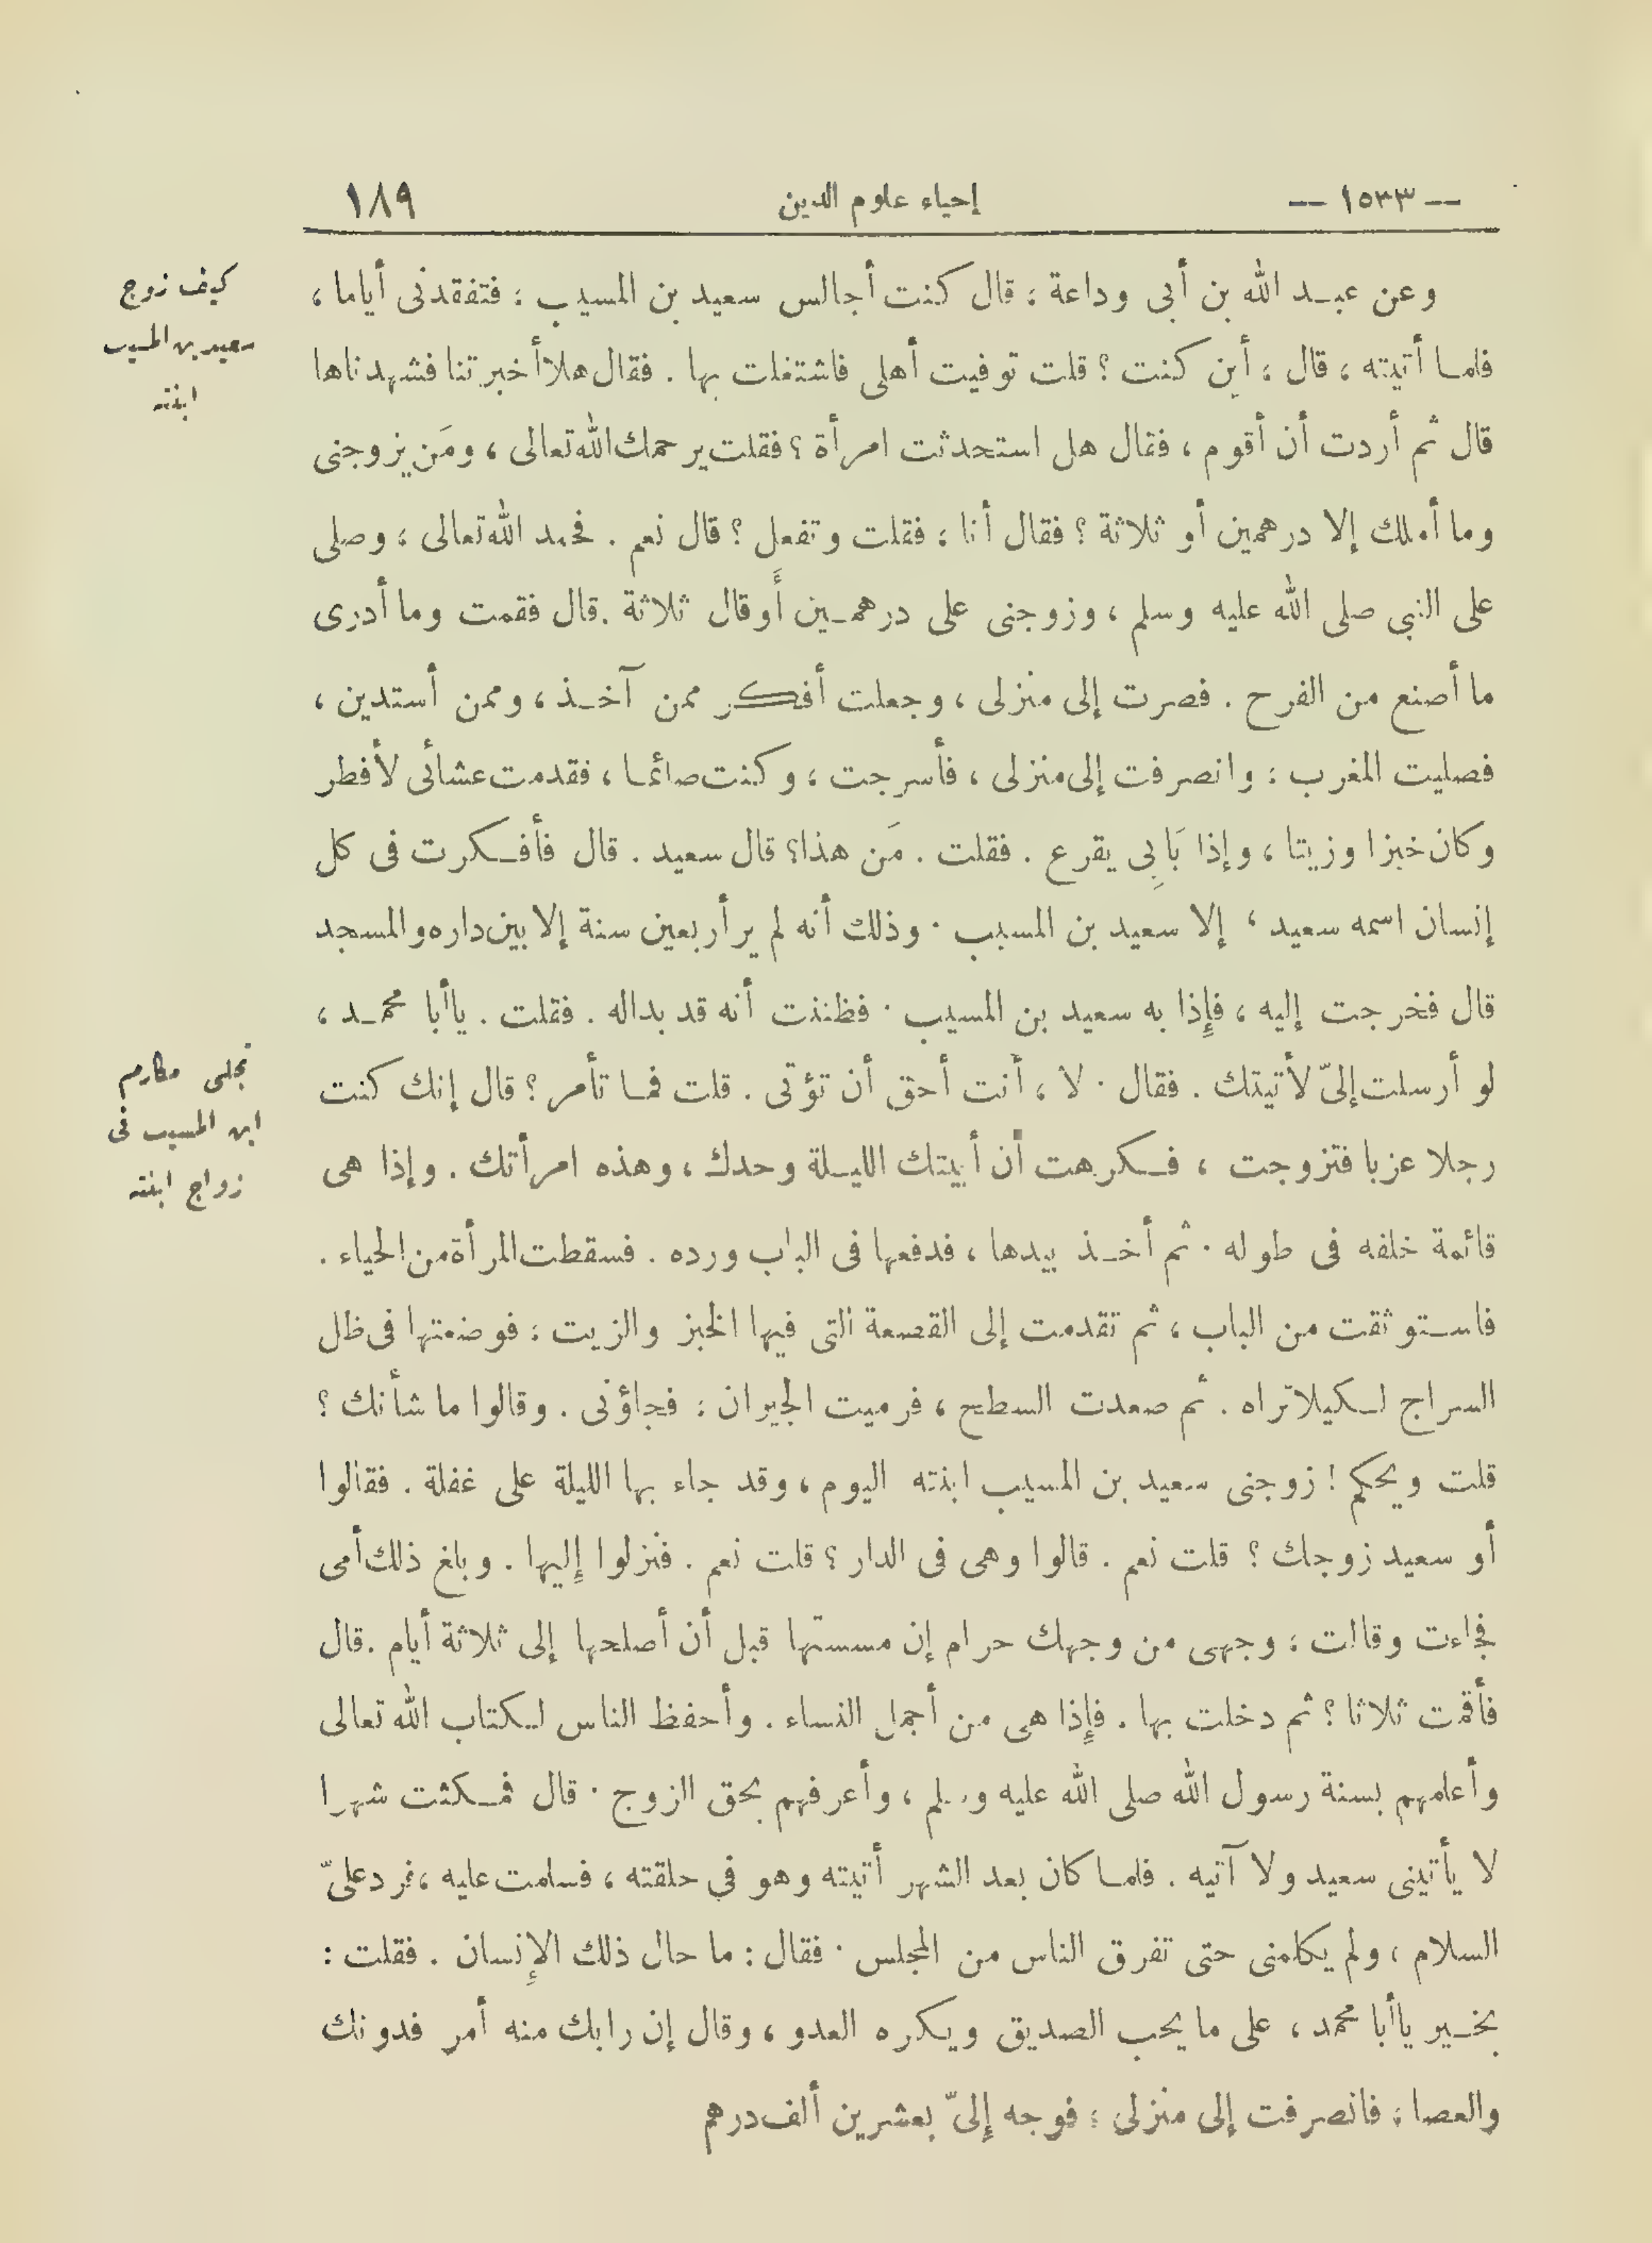 — ١٥٣٣ — إحياء علوم الدين ١٨٩
كيف زوج
سعيد بن المسيب
ابنته
وعن عبد الله بن أبى وداعة ، قال كنت أجالس سعيد بن المسيب ، فتفقدنى أياما ،
فلما أتيته ، قال ، أين كنت ؟ قلت توفيت أهلى فاشتغلت بها . فقال هلا أخبرتنا فشهدناها
قال ثم أردت أن أقوم ، فقال هل استحدثت امرأة ؟ فقلت يرحمك الله تعالى ، ومَن يزوجنى
وما أملك إلا درهمين أو ثلاثة ؟ فقال أنا ، فقلت وتفعل ؟ قال نعم . فحمد الله تعالى ، وصلى
على النبى صلى الله عليه وسلم ، وزوجنى على درهمين أَو قال ثلاثة . قال فقمت وما أدرى
ما أصنع من الفرح . فصرت إلى منزلى ، وجعلت أفكر ممن آخذ ، وممن أستدين ،
فصليت المغرب ، وانصرفت إلى منزلى ، فأسرجت ، وكنت صائما ، فقدمت عشائى لأفطر
وكان خبزا وزيتا ، وإذا بَابِى يقرع . فقلت . مَن هذا؟ قال سعيد . قال فأفكرت فى كل
إنسان اسمه سعيد ، إلا سعيد بن المسيب . وذلك أنه لم ير أربعين سنة إلا بين داره والمسجد
قال فخرجت إليه ، فإِذا به سعيد بن المسيب . فظننت أنه قد بداله . فقلت . ياأبا محمد ،
لو أرسلت إلىّ لأتيتك . فقال . لا ، أنت أحق أن تؤتى . قلت فما تأمر ؟ قال إنك كنت
تجلى مكارم
ابن المسيب فى
زواج ابنته
رجلا عزبا فتزوجت ، فكرهت أن أبيتك الليلة وحدك ، وهذه امرأتك . وإذا هى
قائمة خلفه فى طوله . ثم أخذ بيدها ، فدفعها فى الباب ورده . فسقطت المرأة من الحياء .
فاستوثقت من الباب ، ثم تقدمت إلى القصعة التى فيها الخبز والزيت ، فوضعتها فى ظل
السراج لكيلا تراه . ثم صعدت السطح ، فرميت الجيران ، فجاؤنى . وقالوا ما شأنك ؟
قلت ويحكم ! زوجنى سعيد بن المسيب ابنته اليوم ، وقد جاء بها الليلة على غفلة . فقالوا
أو سعيد زوجك ؟ قلت نعم . قالوا وهى فى الدار ؟ قلت نعم . فنزلوا إِليها . وبلغ ذلك أمى
فجاءت وقالت ، وجهى من وجهك حرام إن مسستها قبل أن أصلحها إلى ثلاثة أيام . قال
فأقمت ثلاثا ؟ ثم دخلت بها . فإِذا هى من أجمل النساء . وأحفظ الناس لكتاب الله تعالى
وأعلمهم بسنة رسول الله صلى الله عليه وسلم ، وأعرفهم بحق الزوج . قال فمكثت شهرا
لا يأتينى سعيد ولا آتيه . فلما كان بعد الشهر أتيته وهو في حلقته ، فسلمت عليه ، فرد علىّ
السلام ، ولم يكلمنى حتى تفرق الناس من المجلس . فقال : ما حال ذلك الإِنسان . فقلت :
بخير ياأبا محمد ، على ما يحب الصديق ويكره العدو ، وقال إن رابك منه أمر فدونك
والعصا ، فانصرفت إلى منزلى ، فوجه إِلىّ بعشرين ألف درهم